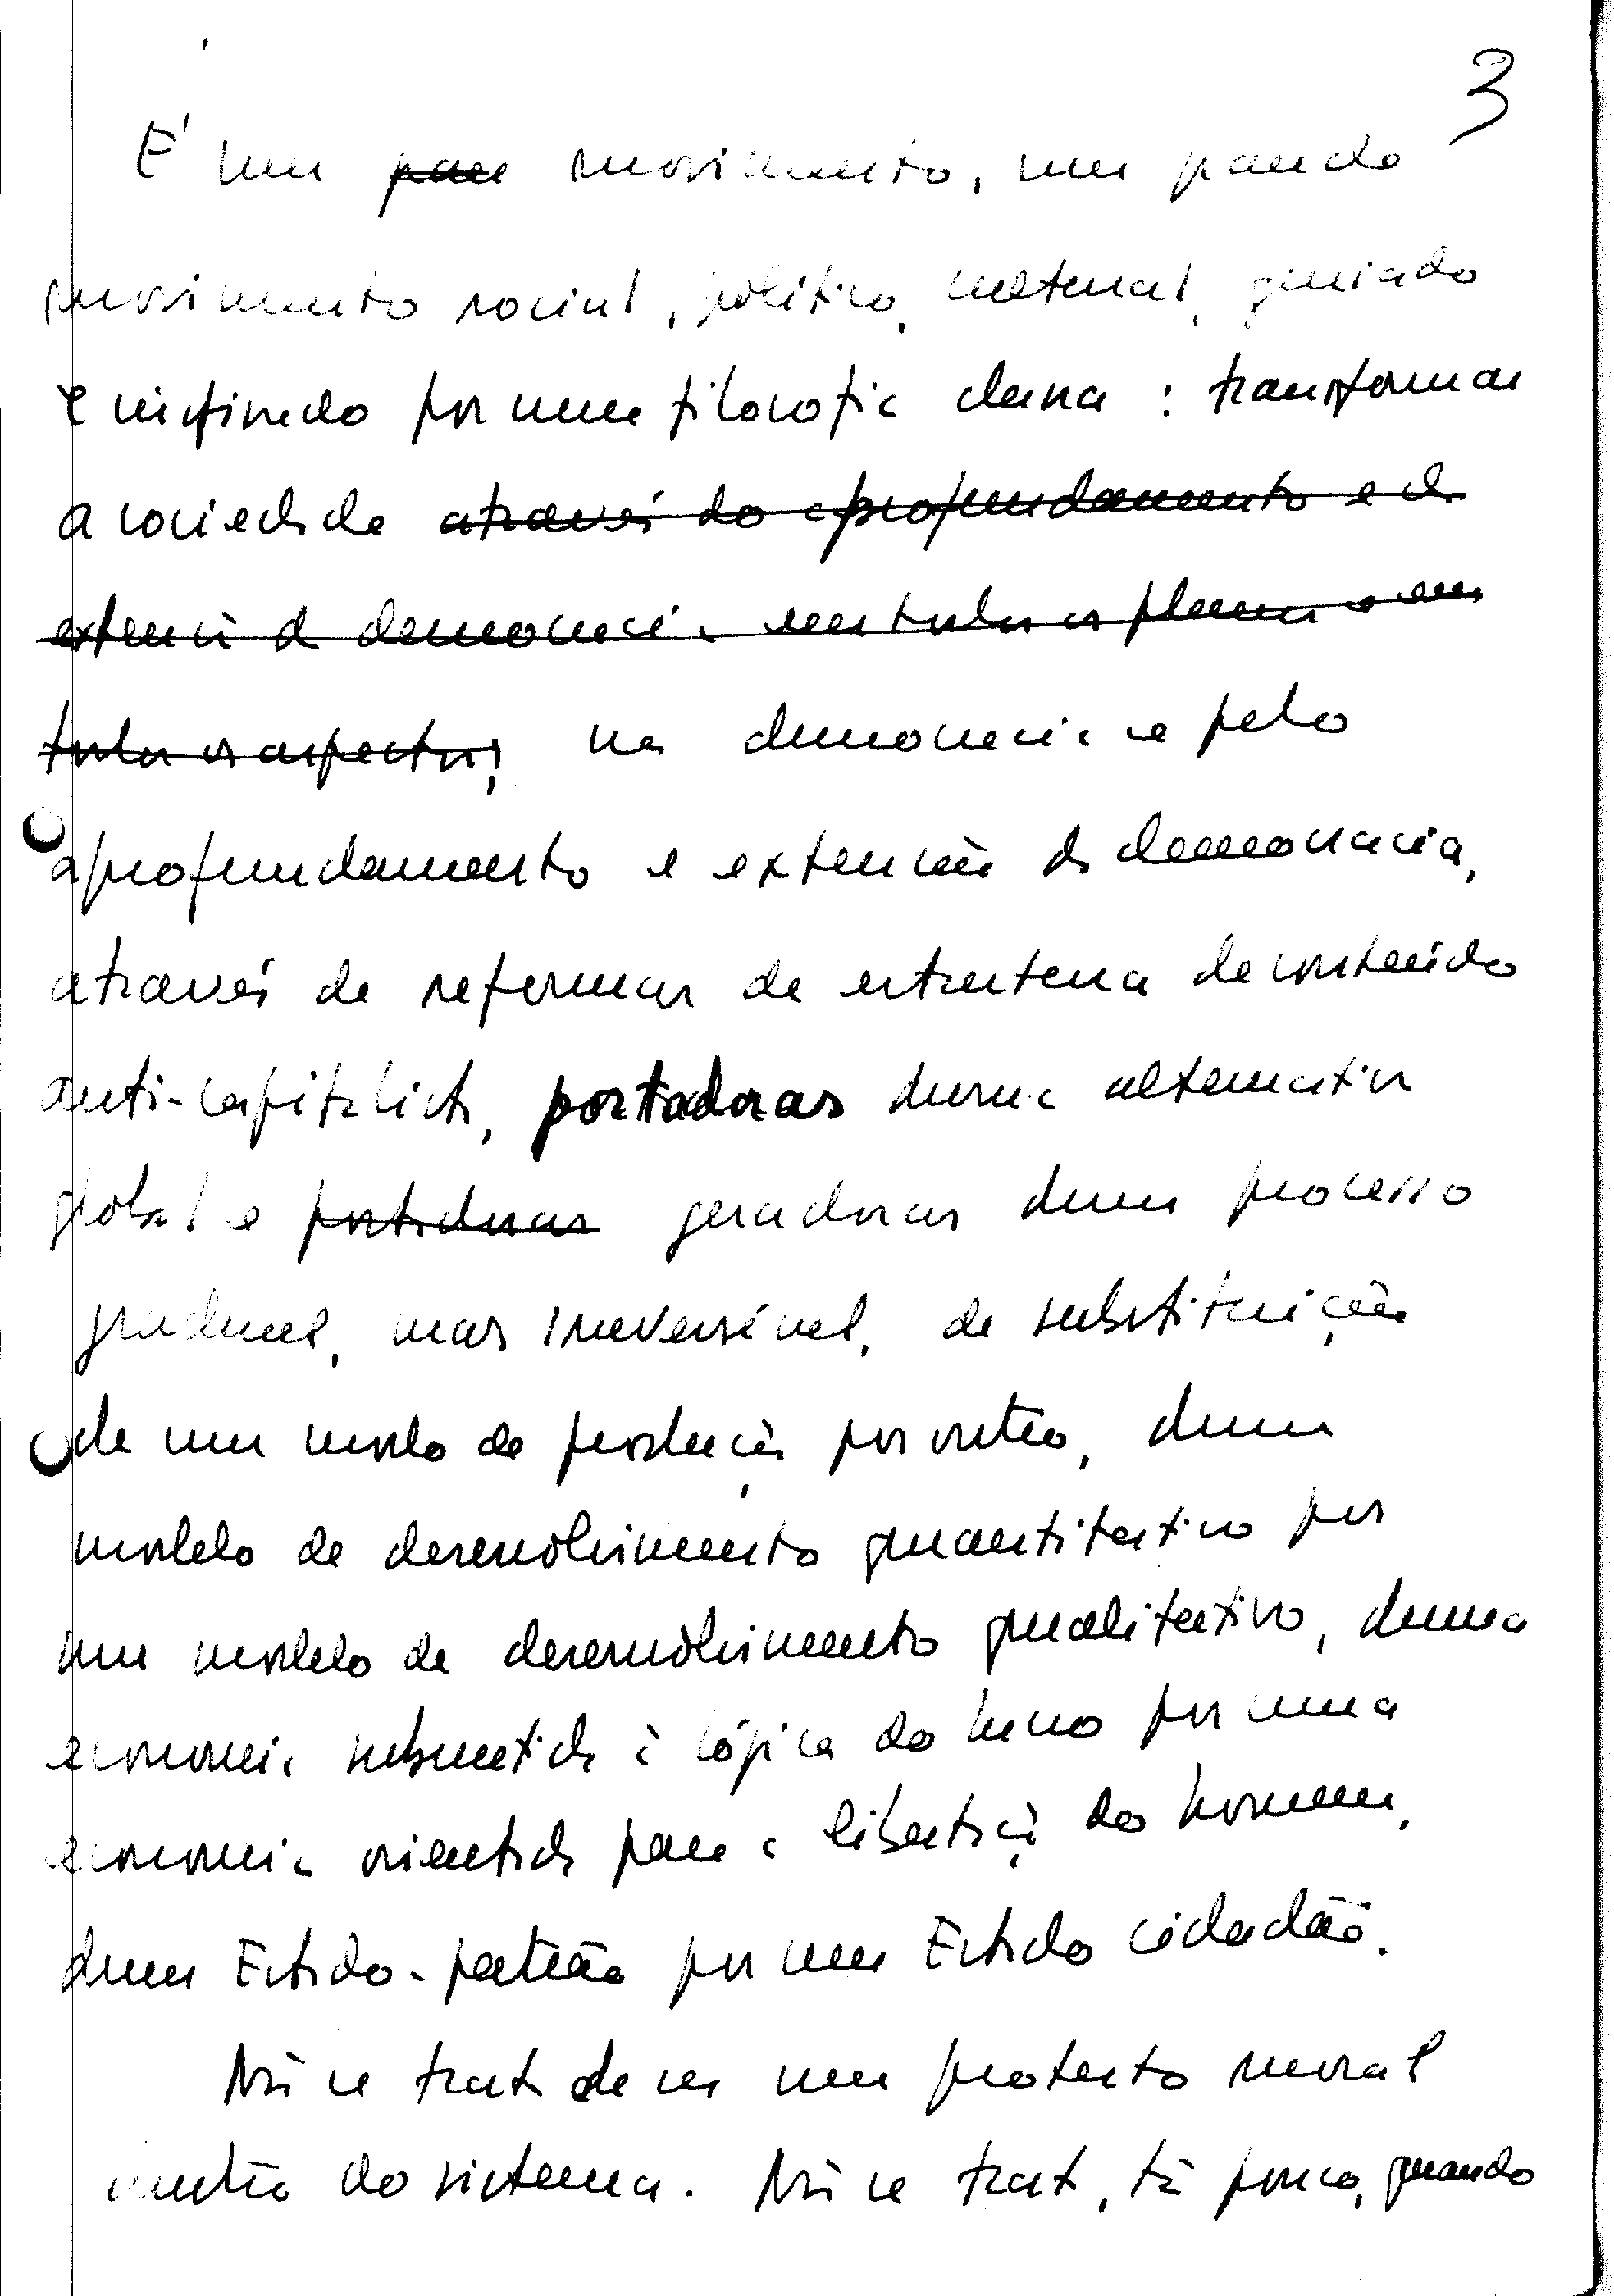 3
É um para movimento, um grande
movimento social, político, cultural, guiado
e inspirado por uma filosofia clara: transformar
a sociedade através do aprofundamento e da
extensão da democracia em todos os planos e em
todos os aspectos; na democracia e pelo
aprofundamento e extensão da democracia,
através de reformas de estrutura de conteúdo
anti-capitalista, portadoras duma alternativa
global e portadoras geradoras dum processo
gradual, mas irreversível, de substituição
de um modo de produção por outro, dum
modelo de desenvolvimento quantitativo por
um modelo de desenvolvimento qualitativo, duma
economia submetida à lógica do lucro por uma
economia orientada para a libertação do homem,
dum Estado-patrão por um Estado cidadão.
Não se trata de ser um protesto moral
contra do sistema. Não se trata, tão pouco, quando